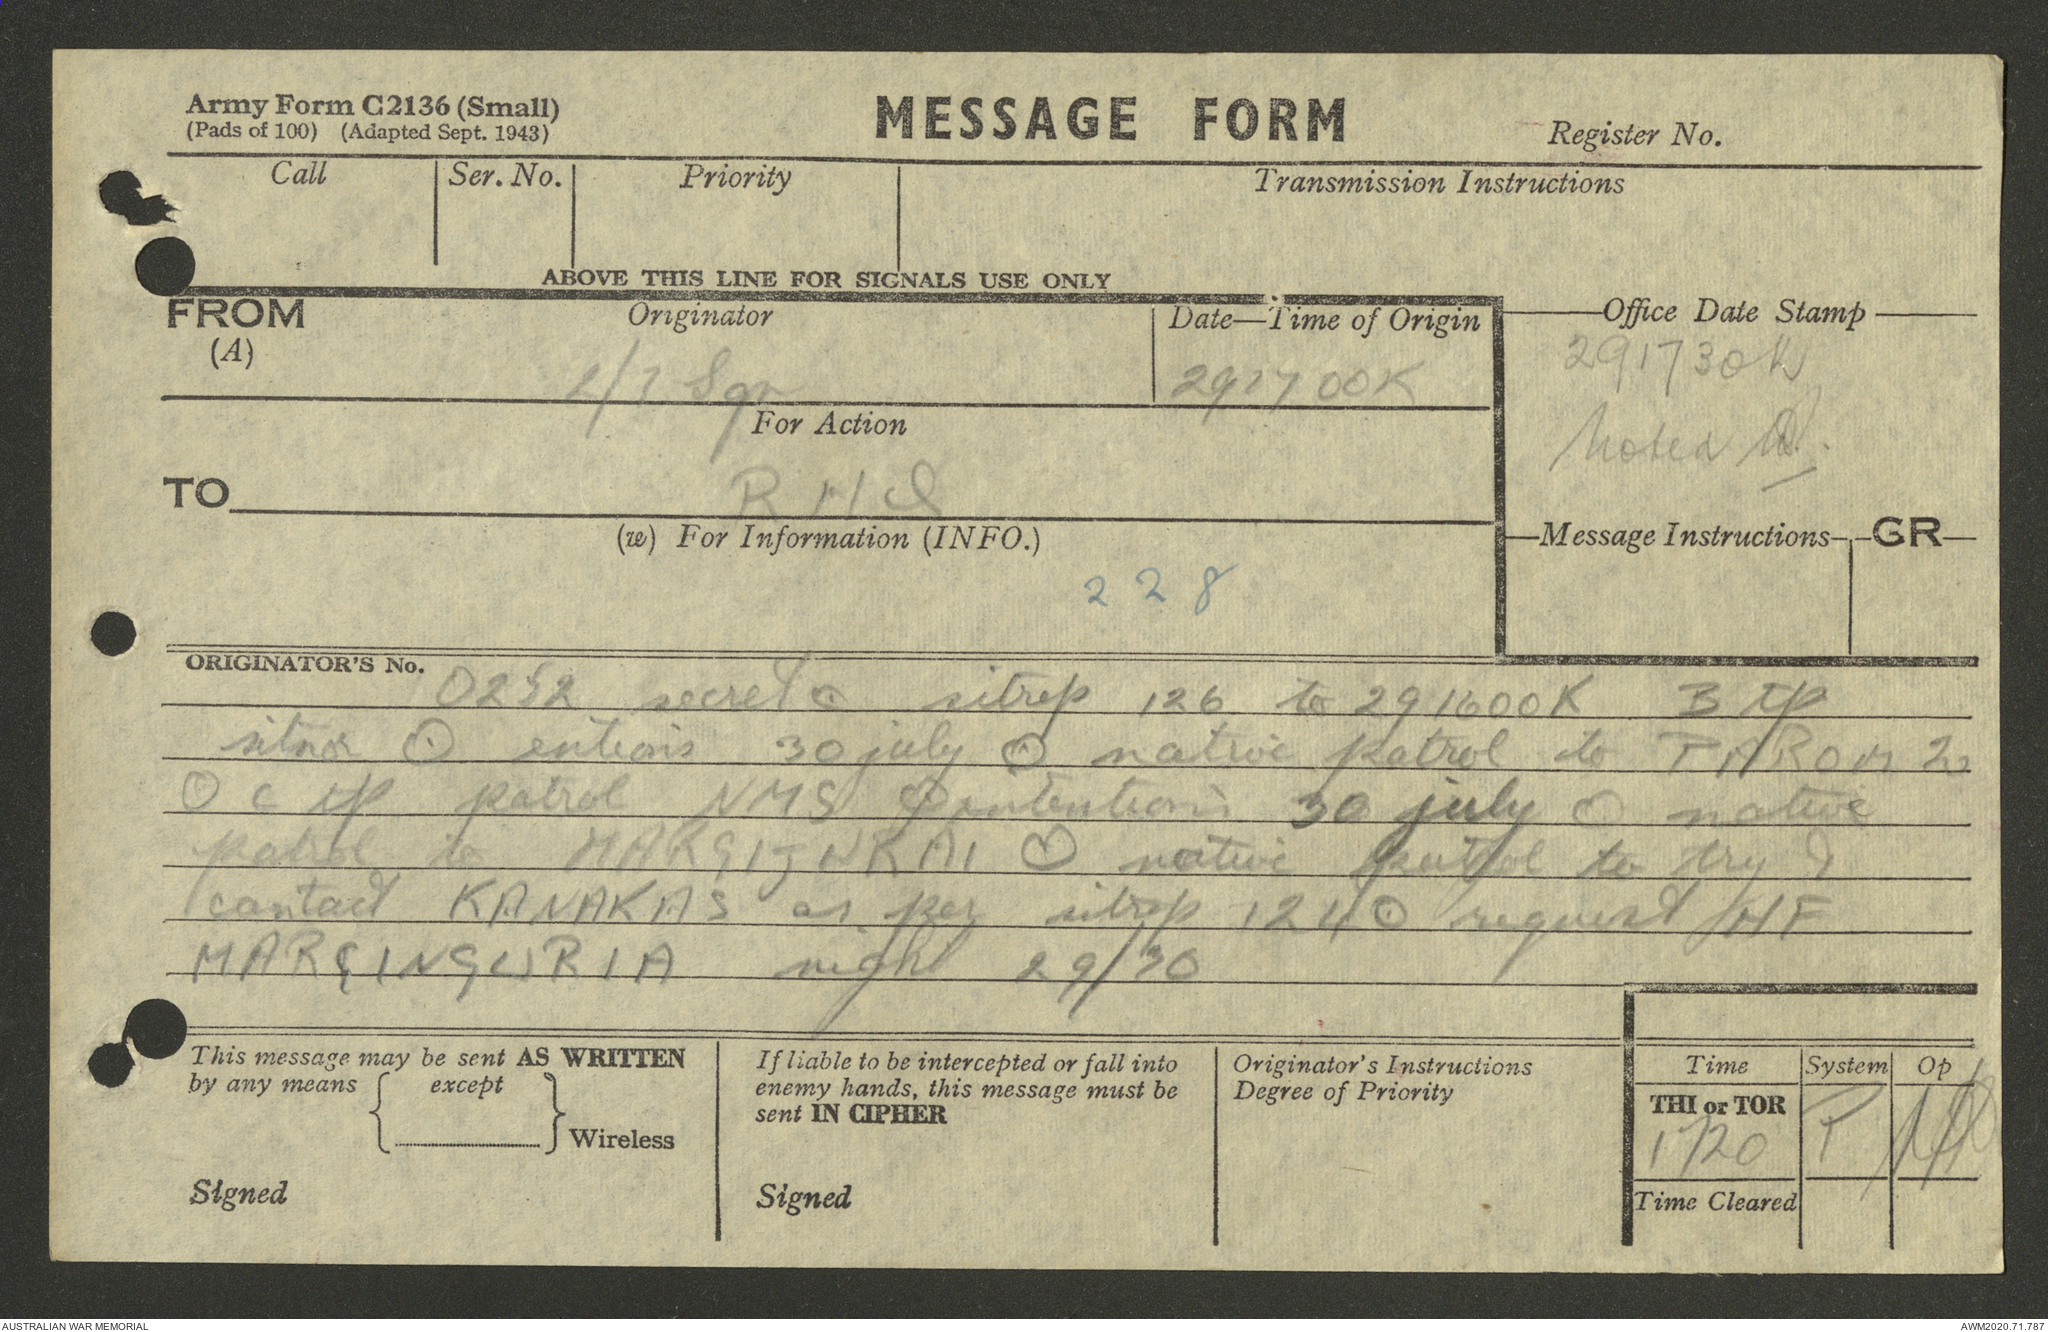 Army Form C2136 (Small)
(Pads of 100) (Adapted Sept. 1943)
MESSAGE FORM
Register No.
Call
Ser. No.
Priority
Transmission Instructions
ABOVE THIS LINE FOR SIGNALS USE ONLY
FROM
(A)
Originator
2/7 Sqn
Date—Time of Origin
291700K
Office Date Stamp
291730K
Noted
For Action
TO
RHQ
(w) For Information (INFO.)
228
Message Instructions
GR
ORIGINATOR'S No.
0252 secret ⊙ sitrep 126 to 291600K B tp
⊙ 30 july ⊙ native patrol to
⊙ C tp patrol NMS ⊙ intentions 30 july ⊙ native
patrol to ⊙ native patrol to try &
contact KANAKAS as per sitrep 124 ⊙ request HF
night 29/30
This message may be sent AS WRITTEN
by any means { except } Wireless
Signed
If liable to be intercepted or fall into
enemy hands, this message must be
sent IN CIPHER
Signed
Originator's Instructions
Degree of Priority
Time
System
Op
THI or TOR
1720
T
Time Cleared
AUSTRALIAN WAR MEMORIAL
AWM2020.71.787